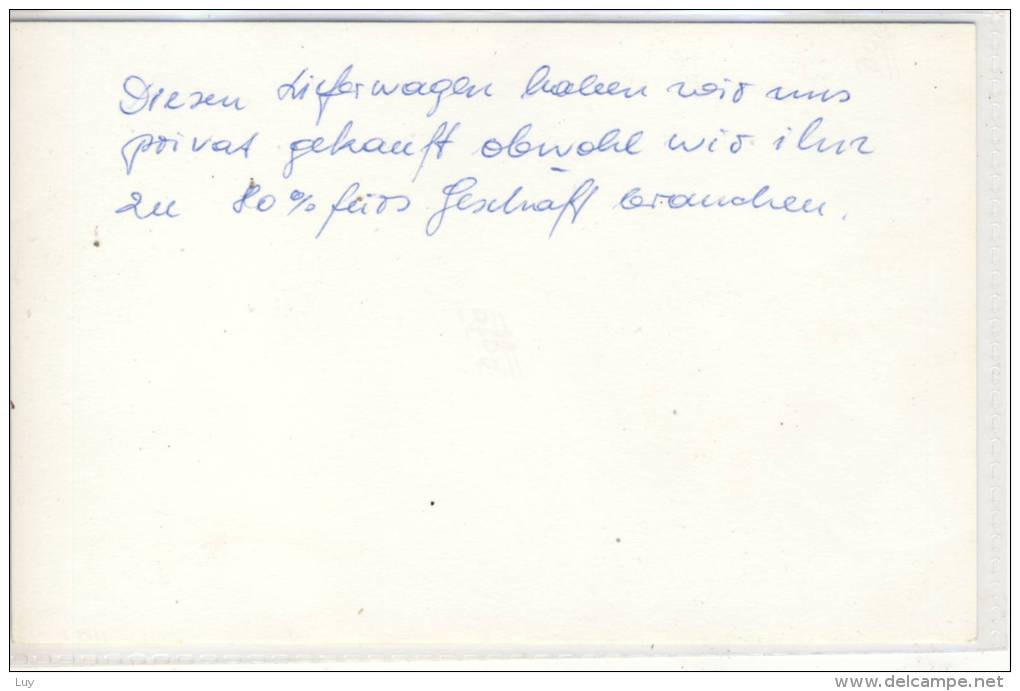 Diesen Lieferwagen haben wir uns
privat gekauft obwohl wir ihn
zu 80% fürs Geschäft brauchen.
Luy
delcampe.net